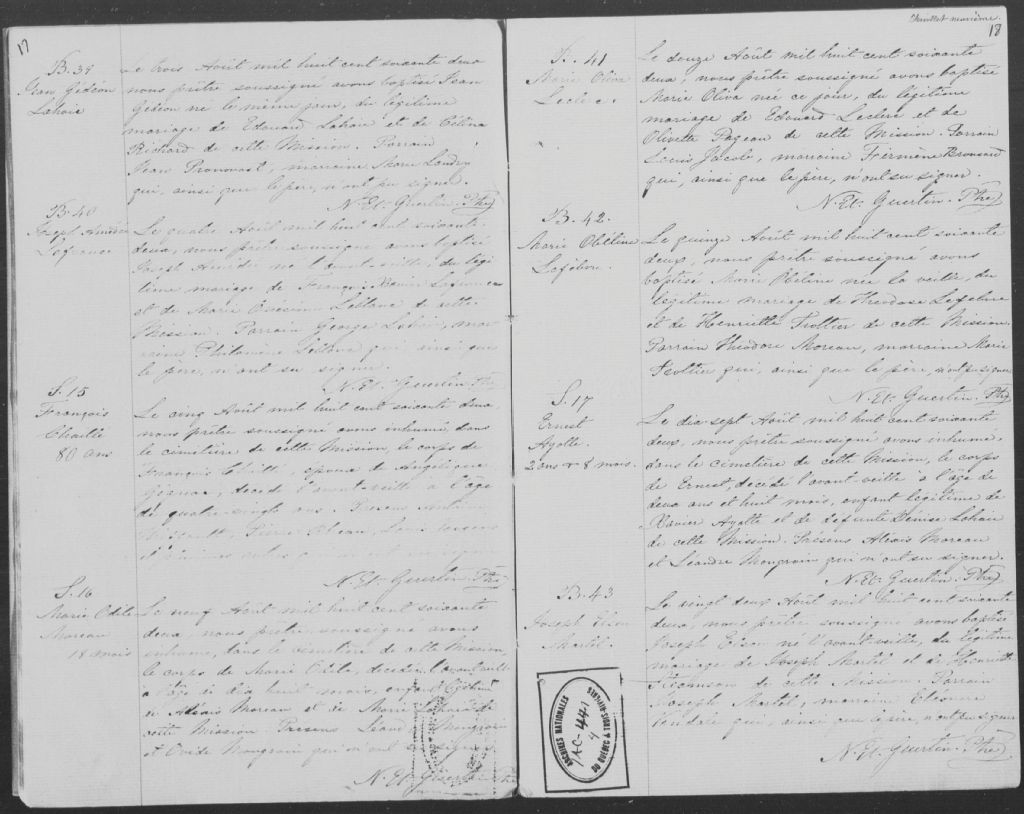 17
B. 39
Jean Gédéon
Lahaie
Le trois Août mil huit cent soixante deux
nous prêtre soussigné avons baptisé Jean
Gédéon né le même jour, du légitime
mariage de Edouard Lahaie et de Célina
Richard de cette Mission. Parrain
Jean Pronovost, marraine Marie Landry
qui, ainsi que le père, n'ont pu signer.
N. Et. Guertin. Ptre
B. 40
Joseph Amédé
Lafrance
Le quatre Août mil huit cent soixante
deux, nous prêtre soussigné avons baptisé
Joseph Amédé né l'avant-veille, du légi
time mariage de François Xavier Lafrance
et de Marie Lesiane de cette
Mission. Parrain George Lahaie, mar
raine Philomène Lesiane qui ainsi que
le père, n'ont su signer.
N. Et. Guertin Ptre
S. 15
François
Chaillé
80 ans
Le cinq Août mil huit cent soixante deux,
nous prêtre soussigné avons inhumé dans
le cimetière de cette Mission, le corps de
François Chaillé, époux de Angélique
décédé l'avant-veille à l'âge
de quatre-vingts ans. Présens Antoine
N. Et. Guertin. Ptre
S. 16
Marie Odile
Moreau
18 mois
Le neuf Août mil huit cent soixante
deux, nous prêtre soussigné avons
inhumé, dans le cimetière de cette Mission
le corps de Marie Odile, décédée l'avant-veille
à l'âge de dix huit mois, enfant légitime
de Alexis Moreau et de Marie de
cette Mission. Présens Léandre Mongrain
et Ovide Mongrain qui n'ont su signer.
N. Et. Guertin Ptre
Feuillet neuvième.
18
B. 41
Marie Oliva
Leclerc.
Le douze Août mil huit cent soixante
deux, nous prêtre soussigné avons baptisé
Marie Oliva née ce jour, du légitime
mariage de Edouard Leclerc et de
Olivette Pageau de cette Mission. Parrain
Louis Jacob, marraine Firmène Brousard
qui, ainsi que le père, n'ont su signer.
N. Et. Guertin. Ptre
B. 42.
Marie Obéline
Lefébvre.
Le quinze Août mil huit cent soixante
deux, nous prêtre soussigné avons
baptisé Marie Obéline née la veille, du
légitime mariage de Theodore Lefebvre
et de Henriette Trottier de cette Mission.
Parrain Théodore Moreau, marraine Marie
Trottier qui, ainsi que le père, n'ont pu signer
N. Et. Guertin. Ptre
S. 17
Ernest
Ayotte.
2 ans & 8 mois.
Le dix sept Août mil huit cent soixante
deux, nous prêtre soussigné avons inhumé,
dans le cimetière de cette Mission, le corps
de Ernest, décédé l'avant-veille à l'âge de
deux ans et huit mois, enfant légitime de
Xavier Ayotte et de défunte Denise Lahaie
de cette Mission. Présens Alexis Moreau
et Léandre Mongrain qui n'ont su signer.
N. Et. Guertin. Ptre
B. 43
Joseph Elson
Martel.
Le vingt deux Août mil huit cent soixante
deux, nous prêtre soussigné avons baptisé
Joseph Elson né l'avant-veille, du légitime
mariage de Joseph Martel et de Henriette
de cette Mission. Parrain
Joseph Martel, marraine Eléonore
Vendale qui, ainsi que le père, n'ont pu signer
N. Et. Guertin. Ptre
ARCHIVES NATIONALES
AC-441
4
DU QUÉBEC À TROIS-RIVIÈRES